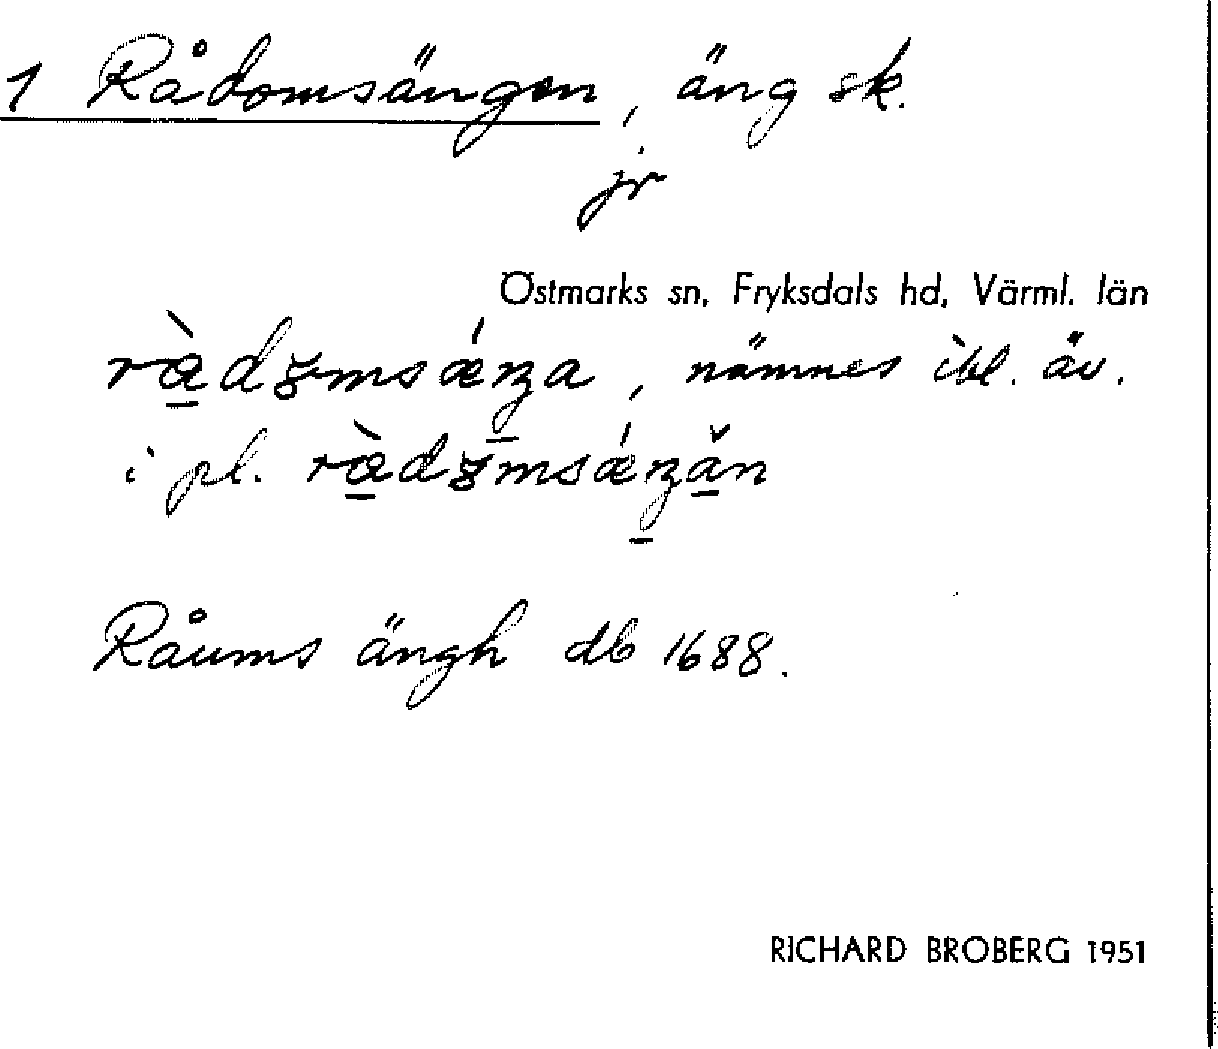 1 Rådomsängen, äng sk.
jr
Östmarks sn, Fryksdals hd, Värml. län
nämnes ibl. äv.
i pl.
Råums ängh db 1688.
RICHARD BROBERG 1951